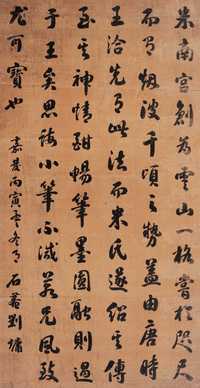 米南宮創為雲山一格嘗於咫尺
而有烟波千頃之勢蓋由唐時
王洽先有此法而米氏遂紹其傳
至其神情酣暢筆墨圓融則過
于王矣思小筆不減若兄風致
尤可寶也 嘉慶丙寅冬 石菴劉墉